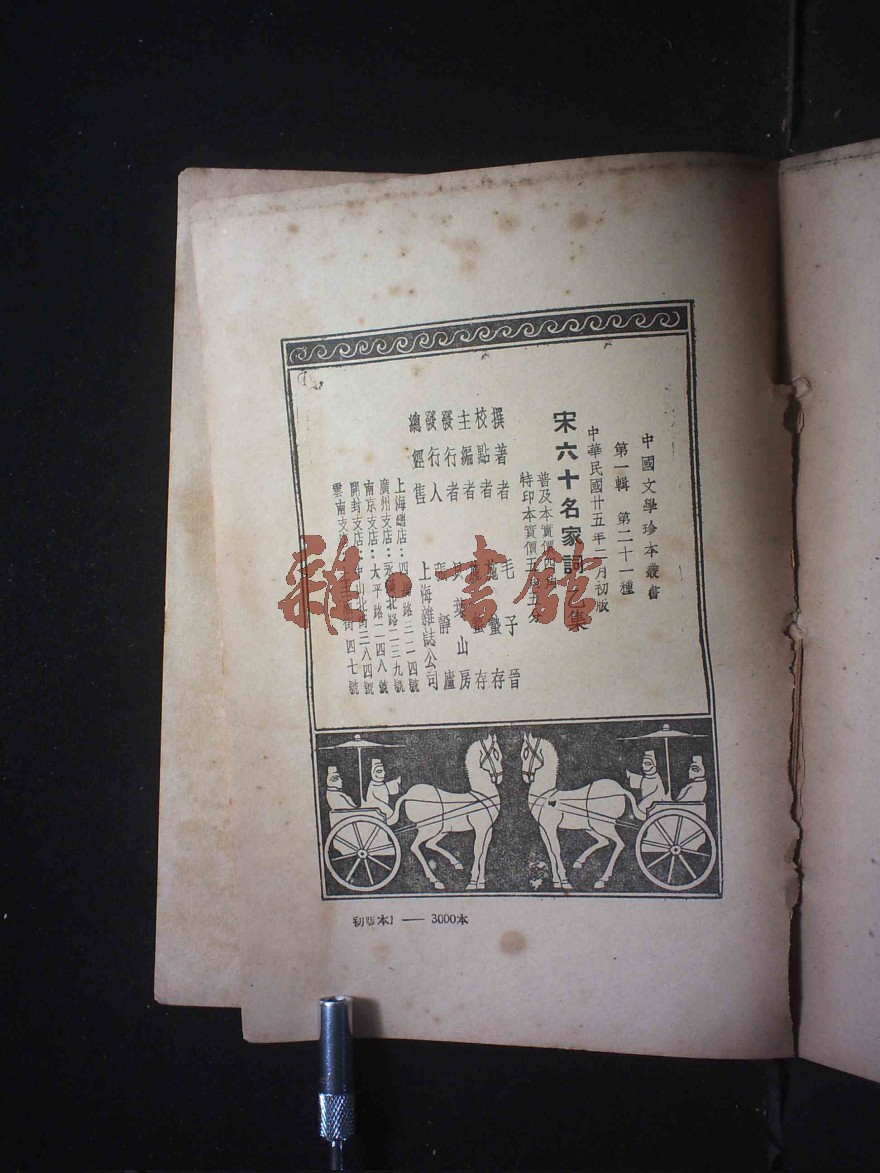 中國文學珍本叢書
第一輯 第二十一種
中華民國廿五年二月初版
宋六十名家詞 集
普及本實價四
特印本實價五 五分
撰著者 毛子晉
校點者 施蟄存
主編者 施蟄存
發行者 貝葉山房
發行人 張靜廬
總經售 上海雜誌公司
上海總店：四 路三二四號
廣州支店：永漢北路二三九號
南京支店：太平路二四八號
開封支店 北街三八四號
雲南支 街四七號
初版本1 — 3000本
雜·書館